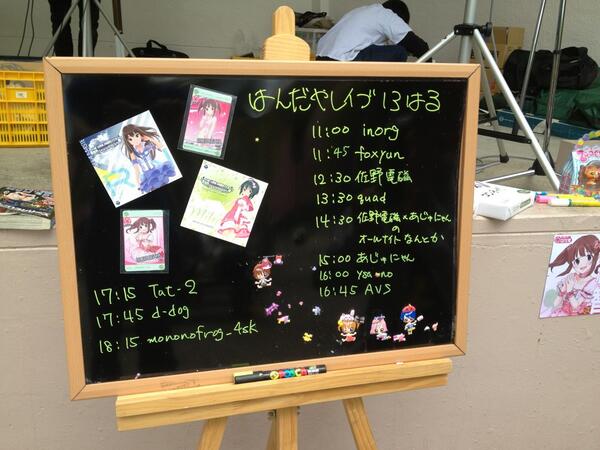 はんだやレイブ13はる
11:00 inorg
11:45 foxyun
12:30 佐野電磁
13:30 quad
14:30 佐野電磁×あじゃにゃん
の
オールナイトなんとか
15:00 あじゃにゃん
16:00 yso-no
16:45 AVS
17:15 Tat-2
17:45 d-dog
18:15 mononofrog_4sk